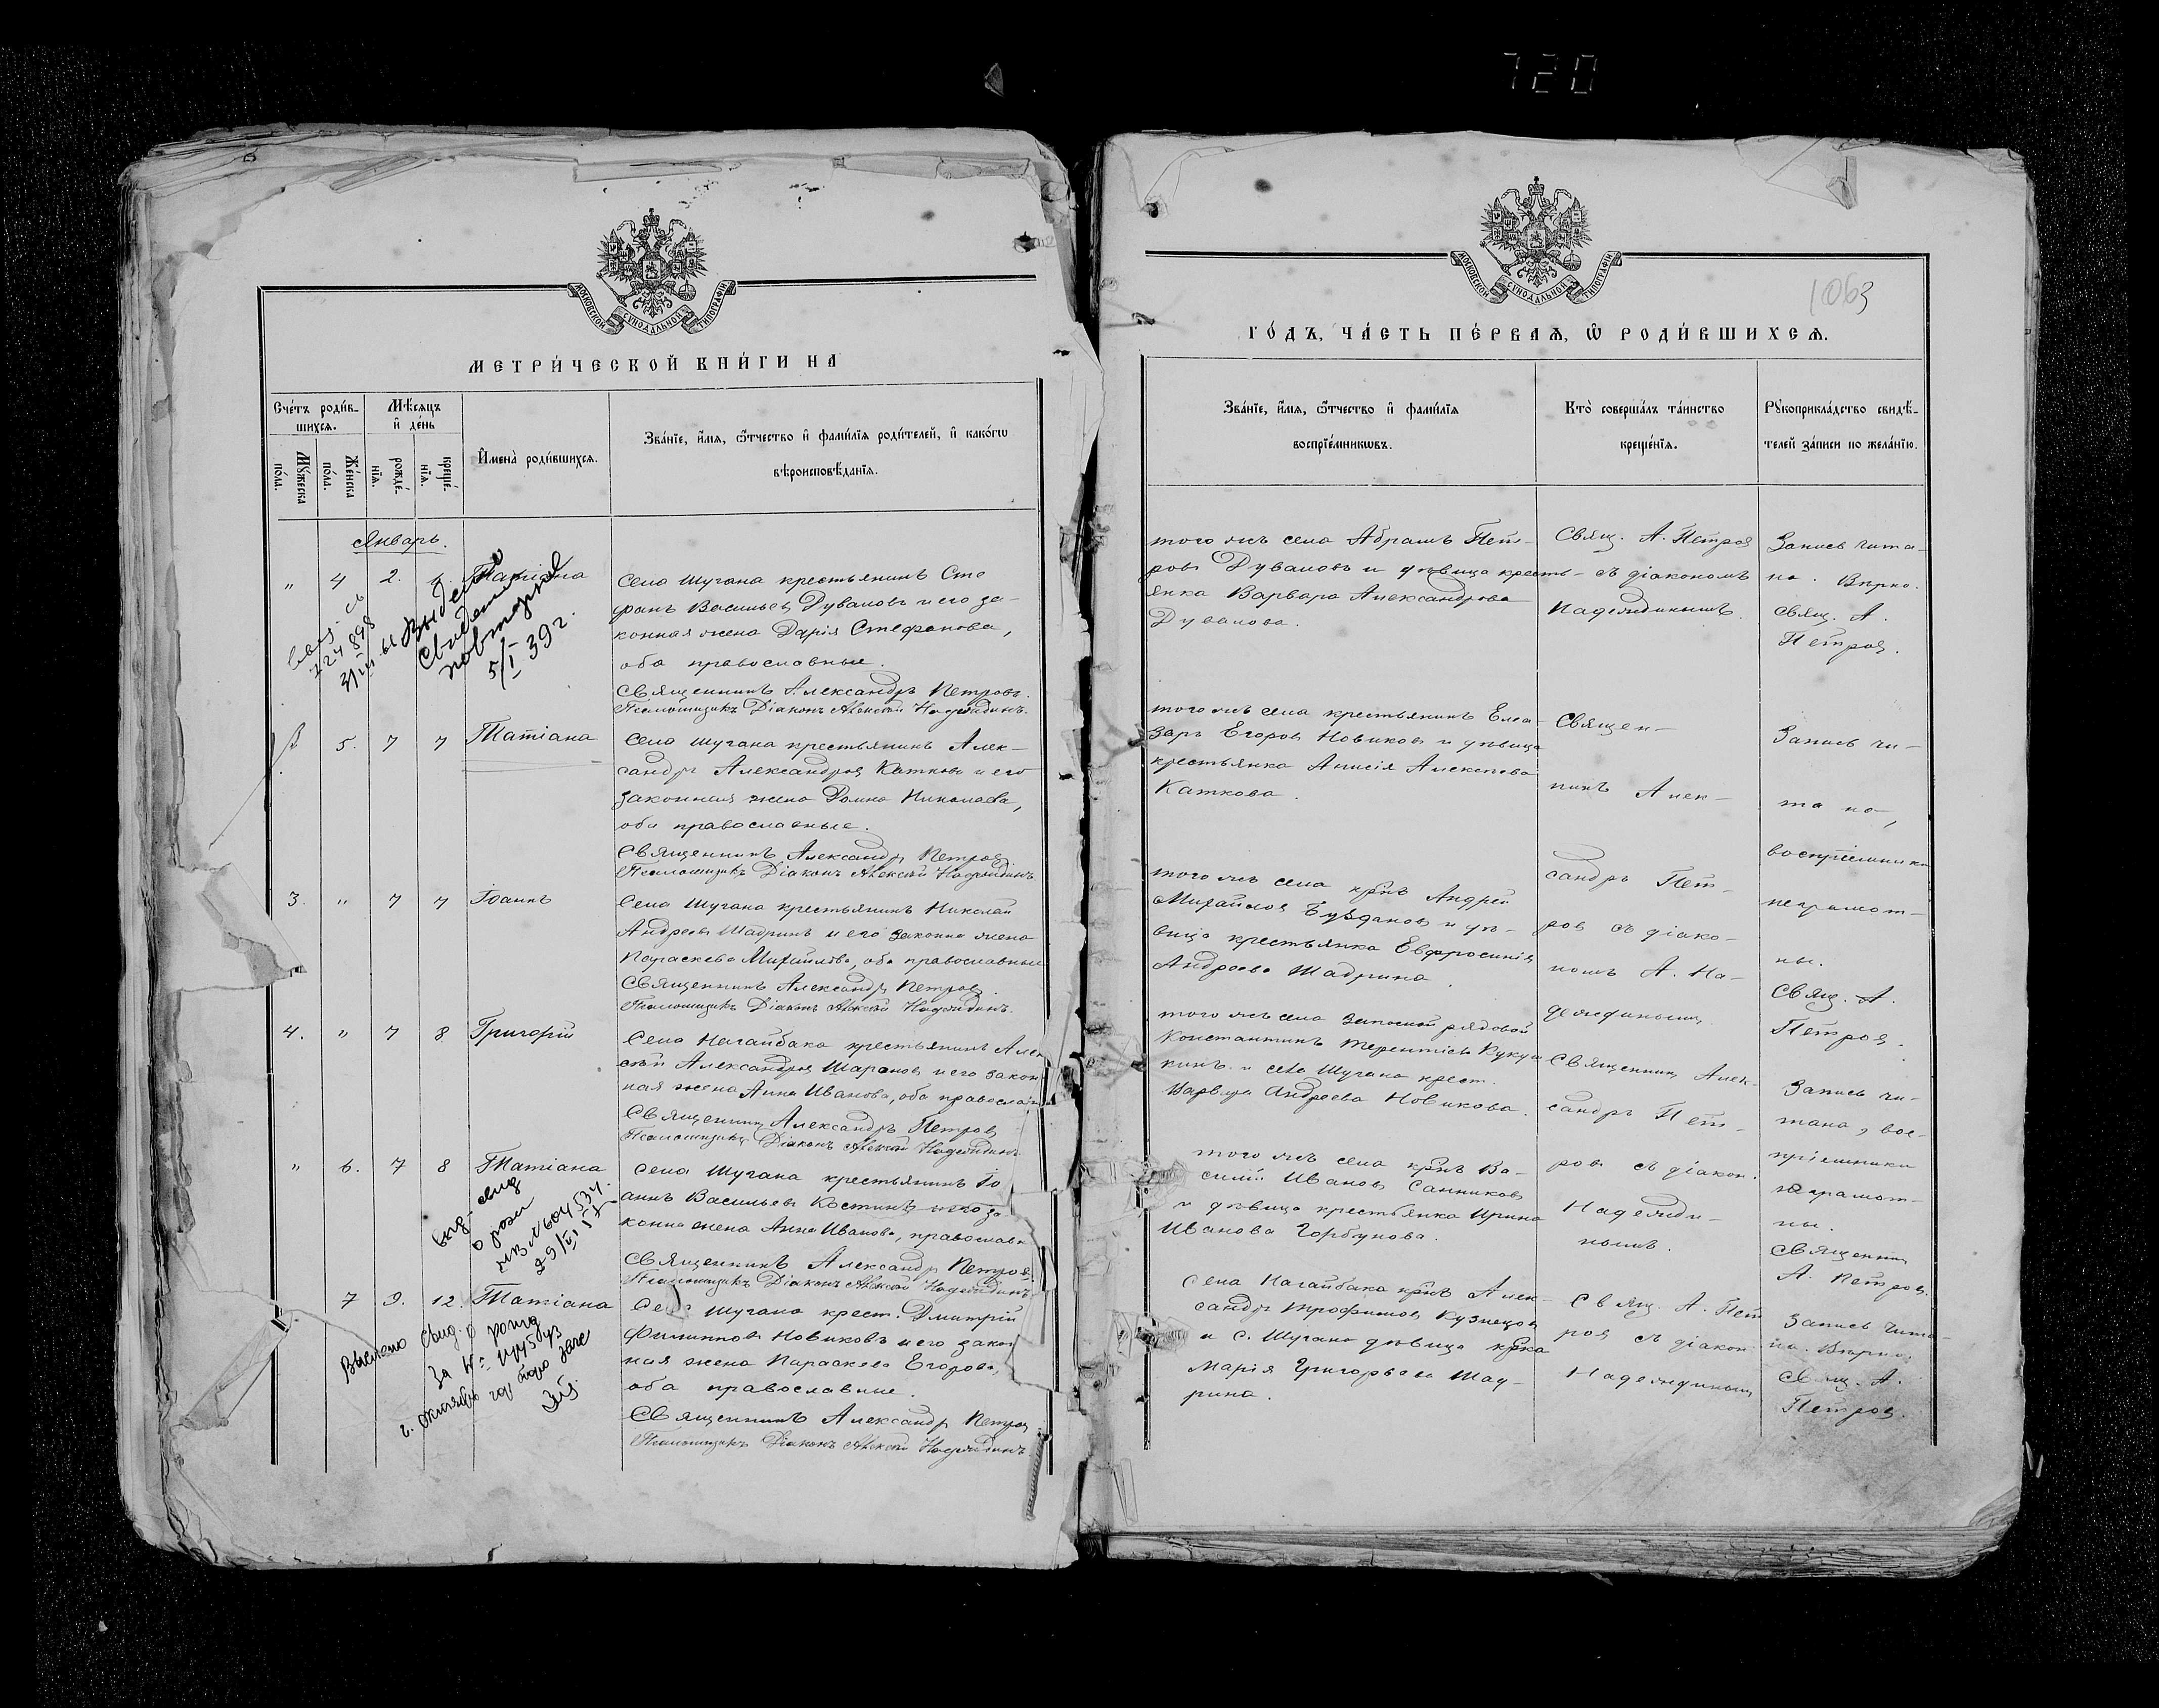 720
МОСКОВСКОЙ СѴНОДАЛЬНОЙ ТИПОГРАФІИ
МЕТРИ́ЧЕСКОЙ КНИ́ГИ НА
Сче́тъ роди́в-
шихсѧ.
Мѣ́сѧцъ
и҆ де́нь
Мꙋ́жеска
по́ла.
Же́нска
по́ла.
рожде́-
нїѧ.
креще́-
нїѧ.
И҆мена̀ роди́вшихсѧ.
Зва́нїе, и҆́мѧ, ѻ҆́тчество и҆ фами́лїѧ роди́телей, и҆ како́гѡ
вѣроисповѣ́данїѧ.
Январь.
" 4 2. Татіана
Села Шугана крестьянинъ Сте
фанъ Васильевъ Дувановъ и его за-
конная жена Дарія Стефанова,
оба православные.
Священникъ Александръ Петровъ.
Псаломщикъ Діаконъ Алексій Надеждинъ.
724898
5/I 39 г.
5. 7 7 Татіана
Села Шугана крестьянинъ Алек-
сандръ Александровъ Катковъ и его
законная жена Домна Николаева,
оба православные.
Священникъ Александръ Петровъ
Псаломщикъ Діаконъ Алексій Надеждинъ
3. " 7 7 Іоаннъ
Села Шугана крестьянинъ Николай
Андреевъ Шадринъ и его законна жена
Параскева Михайлова, оба православные
Священникъ Александръ Петровъ.
Псаломщикъ Діаконъ Алексій Надеждинъ.
4. " 7 8 Григорій
Села Нагайбака крестьянинъ Алек
сѣй Александровъ Шароновъ и его закон
ная жена Анна Иванова, оба православн
Священникъ Александръ Петровъ
Псаломщикъ Діаконъ Алексій Надеждинъ
" 6. 7 8 Татіана
Села Шугана крестьянинъ Іо
аннъ Васильевъ Костинъ и его за
конна жена Анна Иванова, православн
Священникъ Александръ Петровъ.
Псаломщикъ Діаконъ Алексій Надеждинъ
7 9. 12. Татіана
Села Шугана крест. Димитрій
Филипповъ Новиковъ и его закон
ная жена Параскева Егорова,
оба православные.
Священникъ Александръ Петровъ
Псаломщикъ Діаконъ Алексій Надеждинъ
МОСКОВСКОЙ СѴНОДАЛЬНОЙ ТИПОГРАФІИ
1063
ГО́ДЪ, ЧА́СТЬ ПЕ́РВАѦ, Ѡ҆ РОДИ́ВШИХСѦ.
Зва́нїе, и҆́мѧ, ѻ҆́тчество и҆ фами́лїѧ
воспрїе́мникѡвъ.
Кто̀ соверша́лъ та́инство
креще́нїѧ.
Рꙋкоприкла́дство свидѣ́-
телей за́писи по жела́нїю.
того жъ села Абрамъ Пет-
ровъ Дувановъ и дѣвица кресть-
янка Варвара Александрова
Дуванова.
Свящ. А. Петровъ
съ діакономъ
Надеждинымъ.
Запись чита-
на. Вѣрно.
Свящ. А.
Петровъ.
того жъ села крестьянинъ Елеа-
заръ Егоровъ Новиковъ и дѣвица
крестьянка Анисія Алексѣева
Каткова.
Священ-
никъ Алек-
сандръ Пет-
ровъ съ діако-
номъ А. На-
деждинымъ
Запись чи-
та на,
воспріемники
неграмот-
ны.
Свящ. А.
Петровъ.
того жъ села крнъ Андрей
Михайловъ Бузdановъ и дѣ-
вица крестьянка Евфросинія
Андреева Шадрина.
того жъ села запасной рядовой
Константинъ Терентіевъ Куку
кинъ и села Шугана крест.
Варвара Андреева Новикова.
Священникъ Алек-
сандръ Пет-
ровъ съ діакон.
Надежди-
нымъ.
Запись чи-
тана, вос-
пріемники
неграмот-
ны.
Священникъ
А. Петровъ.
того жъ села крнъ Ва-
силій Ивановъ Санниковъ
и дѣвица крестьянка Ирина
Иванова Горбунова.
Села Нагайбака крнъ Алек-
сандръ Трофимовъ Кузнецовъ
и с. Шугана дѣвица крка
Марія Григорьева Шад-
рина.
Свящ. А. Пет
ровъ съ діакон.
Надеждинымъ
Запись чита-
на. Вѣрно.
Свящ. А.
Петровъ.